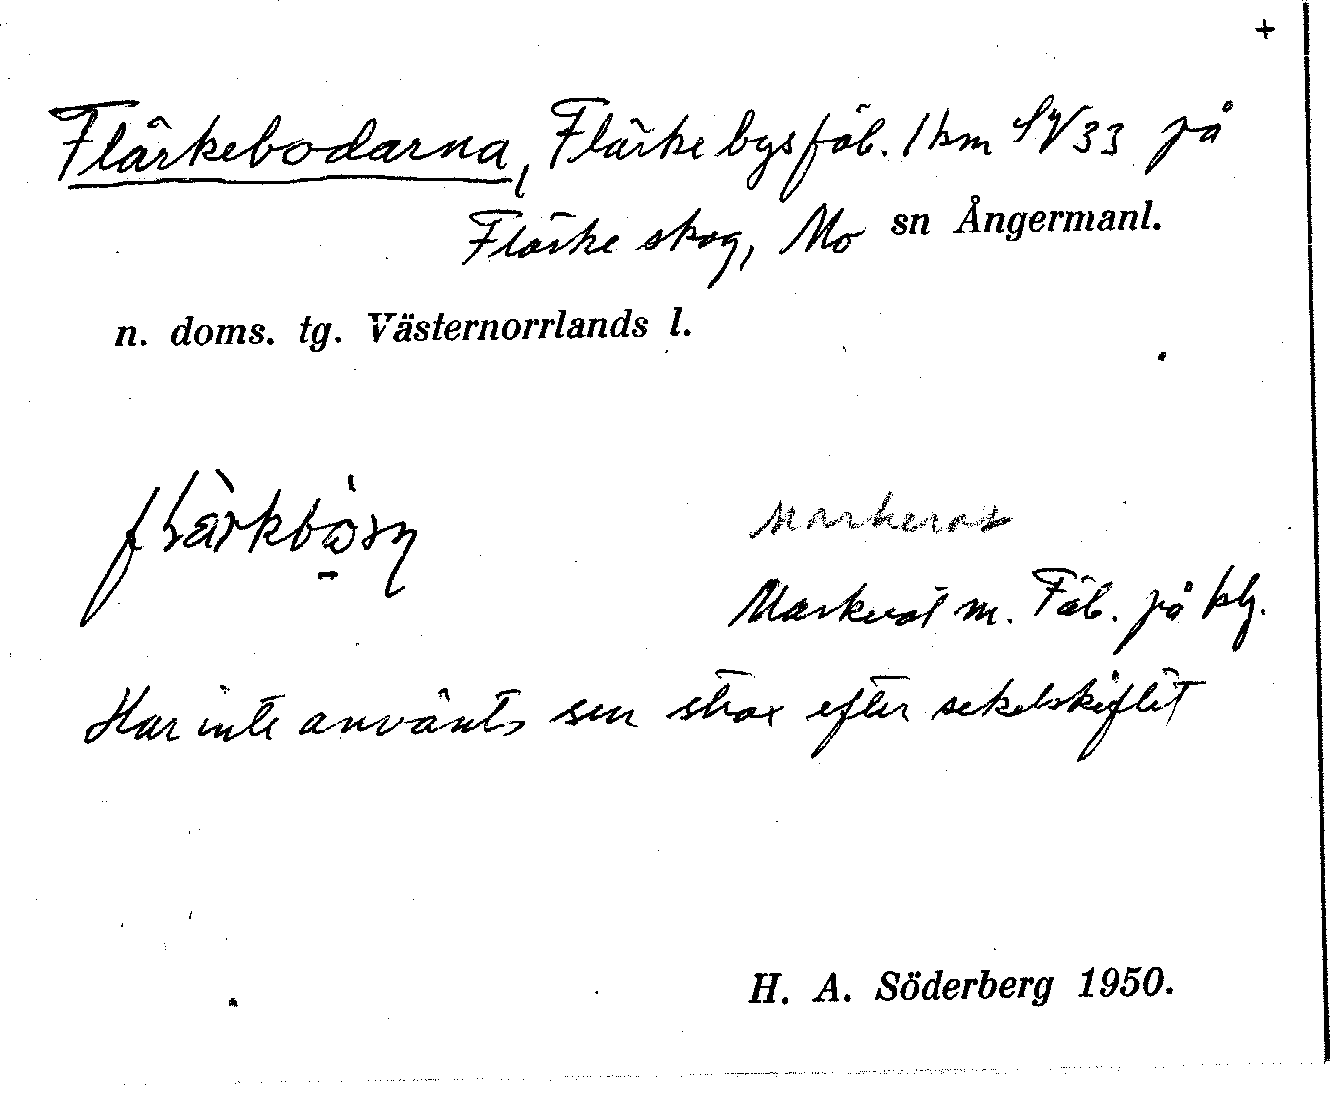 +
Flärkebodarna, Flärke bys fäb. 1 km SV 33 på
Flärke skog, Mo sn Ångermanl.
n. doms. tg. Västernorrlands l.
Markerat
Markerat m. Fäb. på
Har inte använts sen strax efter sekelskiftet
H. A. Söderberg 1950.